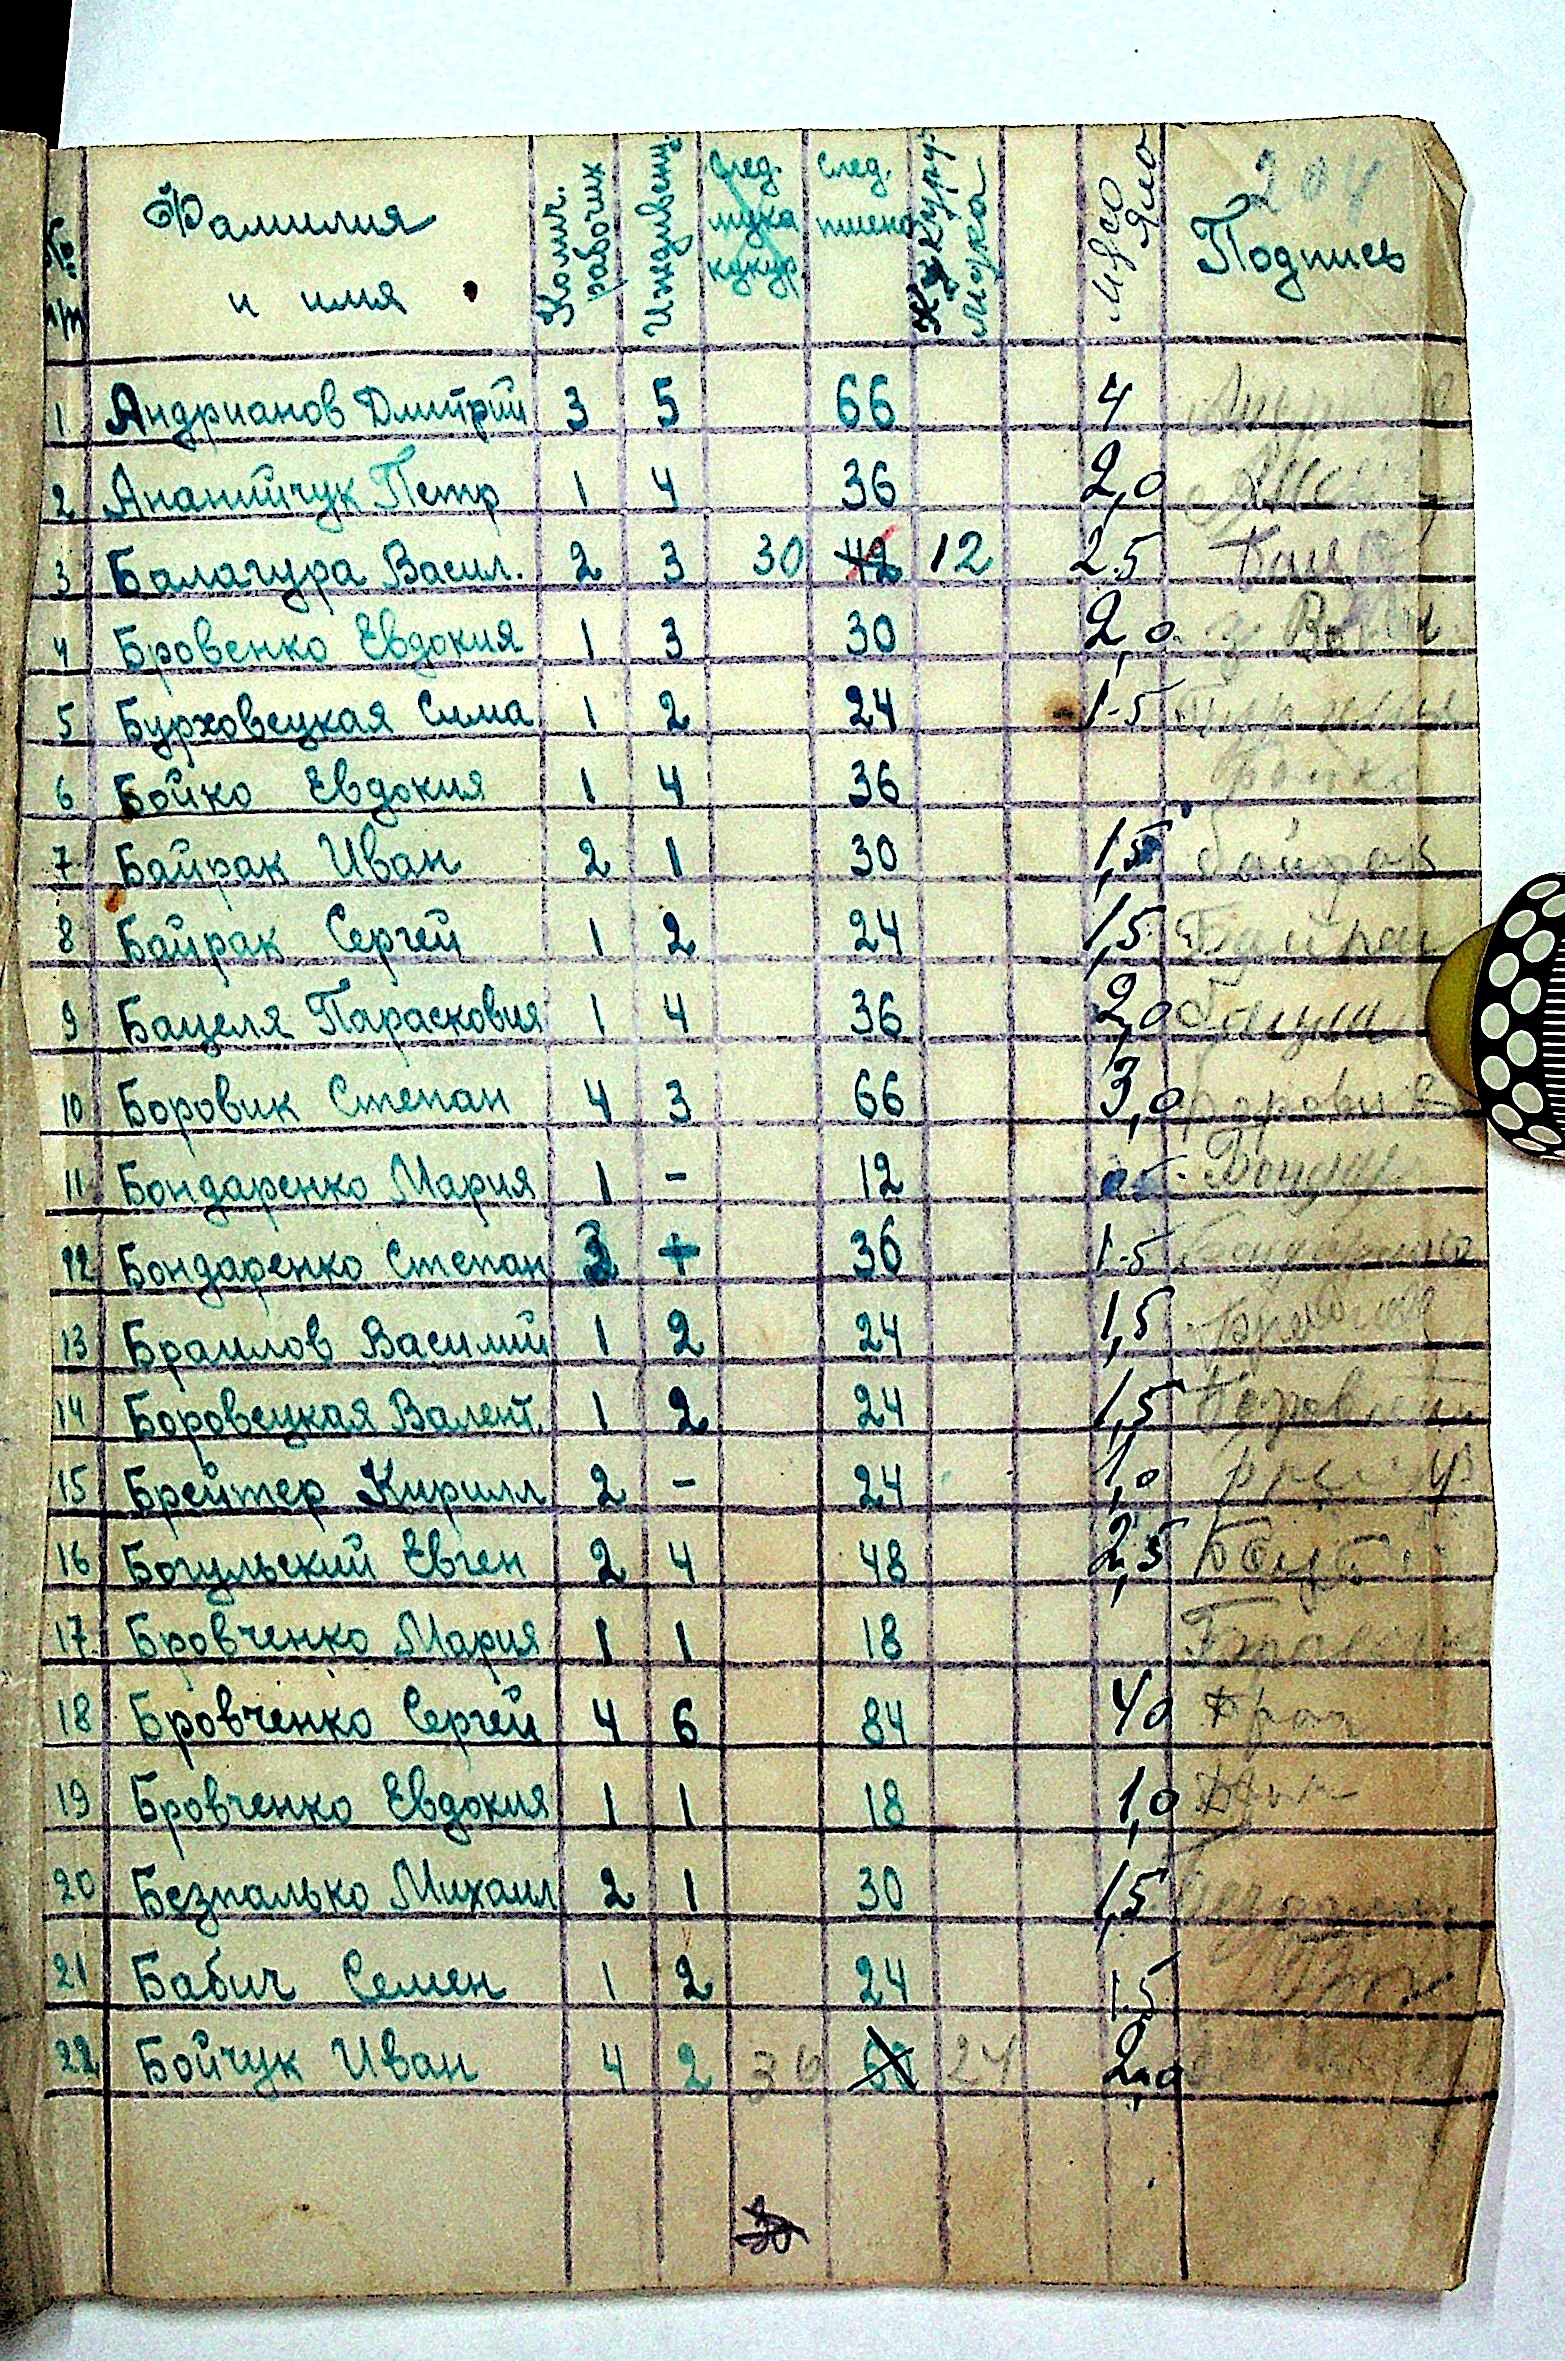 204
№ п/п Фамилия и имя Колич. рабочих Иждивенц. след. мука кукур. след. пшено Кукур. мука Мясо Подпись
1 Андрианов Дмитрий 3 5 66 4
2 Ананийчук Петр 1 4 36 2,0
3 Балагура Васил. 2 3 30 42 12 2.5
4 Бровенко Евдокия 1 3 30 2,0
5 Бурховецкая Сима 1 2 24 1-5
6 Бойко Евдокия 1 4 36 Бойко
7 Байрак Иван 2 1 30 1,5 Байрак
8 Байрак Сергей 1 2 24 1,5 Байрак
9 Бацеля Парасковия 1 4 36 2,0
10 Боровик Степан 4 3 66 3,0 Боровик
11 Бондаренко Мария 1 - 12
12 Бондаренко Степан 3 + 36 1-5 Бондаренко
13 Браилов Василий 1 2 24 1,5
14 Боровецкая Валент. 1 2 24 1,5
15 Брейтер Кирилл 2 - 24 1,0
16 Богульский Евген 2 4 48 2,5
17 Бровченко Мария 1 1 18
18 Бровченко Сергей 4 6 84 40
19 Бровченко Евдокия 1 1 18 1,0
20 Безпалько Михаил 2 1 30 1,5
21 Бабич Семен 1 2 24 1.5
22 Бойчук Иван 4 2 36 60 24 2,0
30